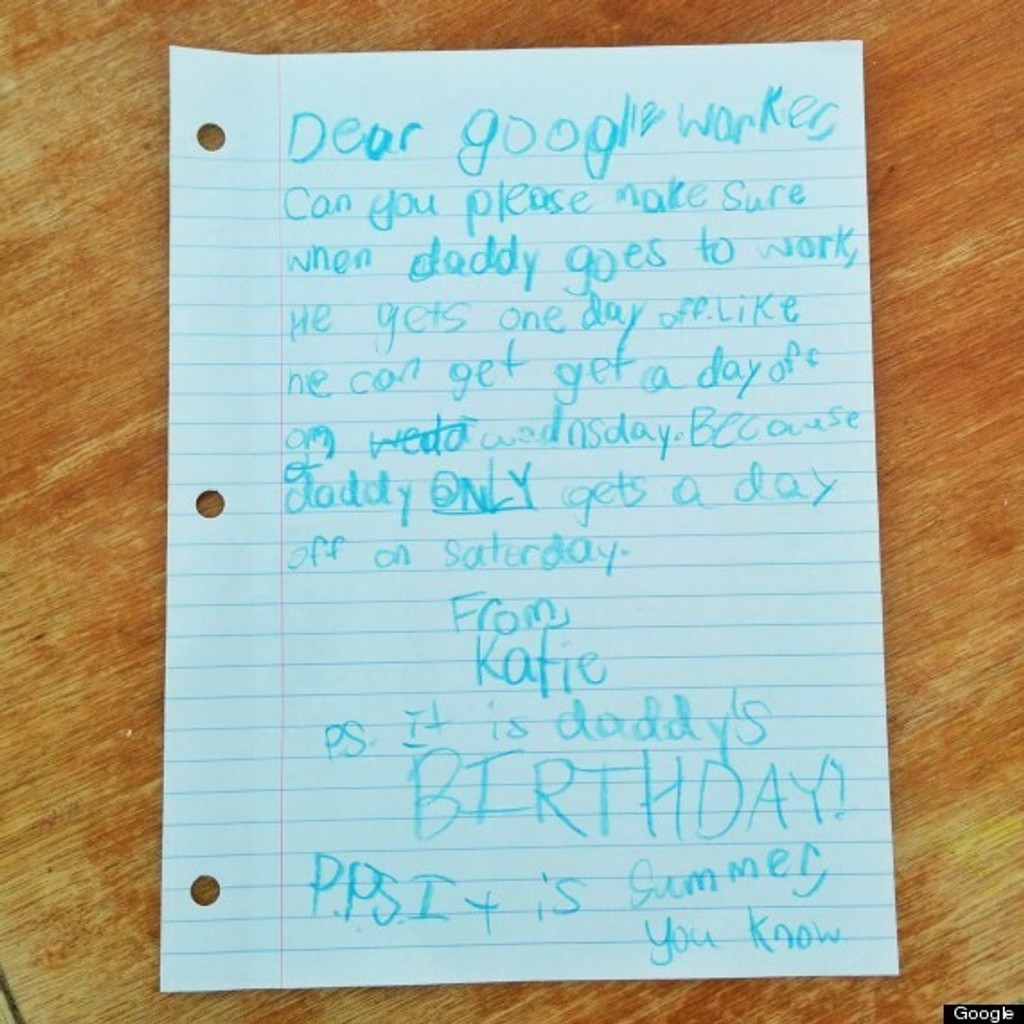 Dear google worker,
Can you please make sure
when daddy goes to work,
He gets one day off. Like
he can get get a day off
on wedd wednsday. Because
daddy ONLY gets a day
off on saterday.
From,
Katie
PS. It is daddy's
BIRTHDAY!
P.P.S. It is summer,
you know
Google